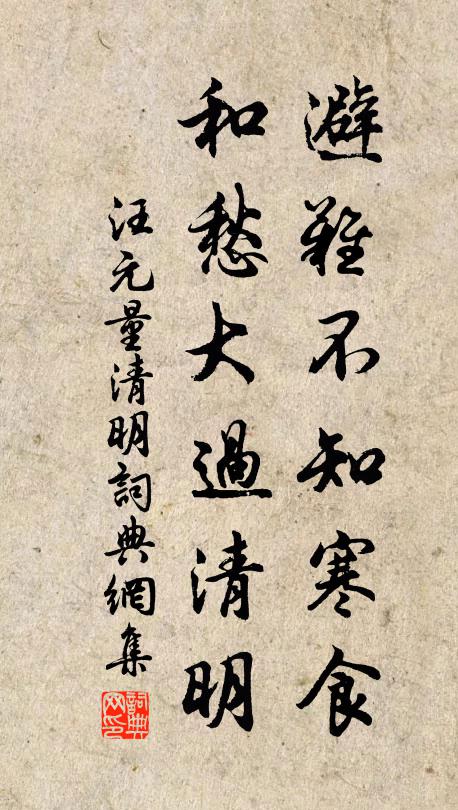 避難不知寒食
和愁大過清明
汪元量清明詞典網集
詞典网印